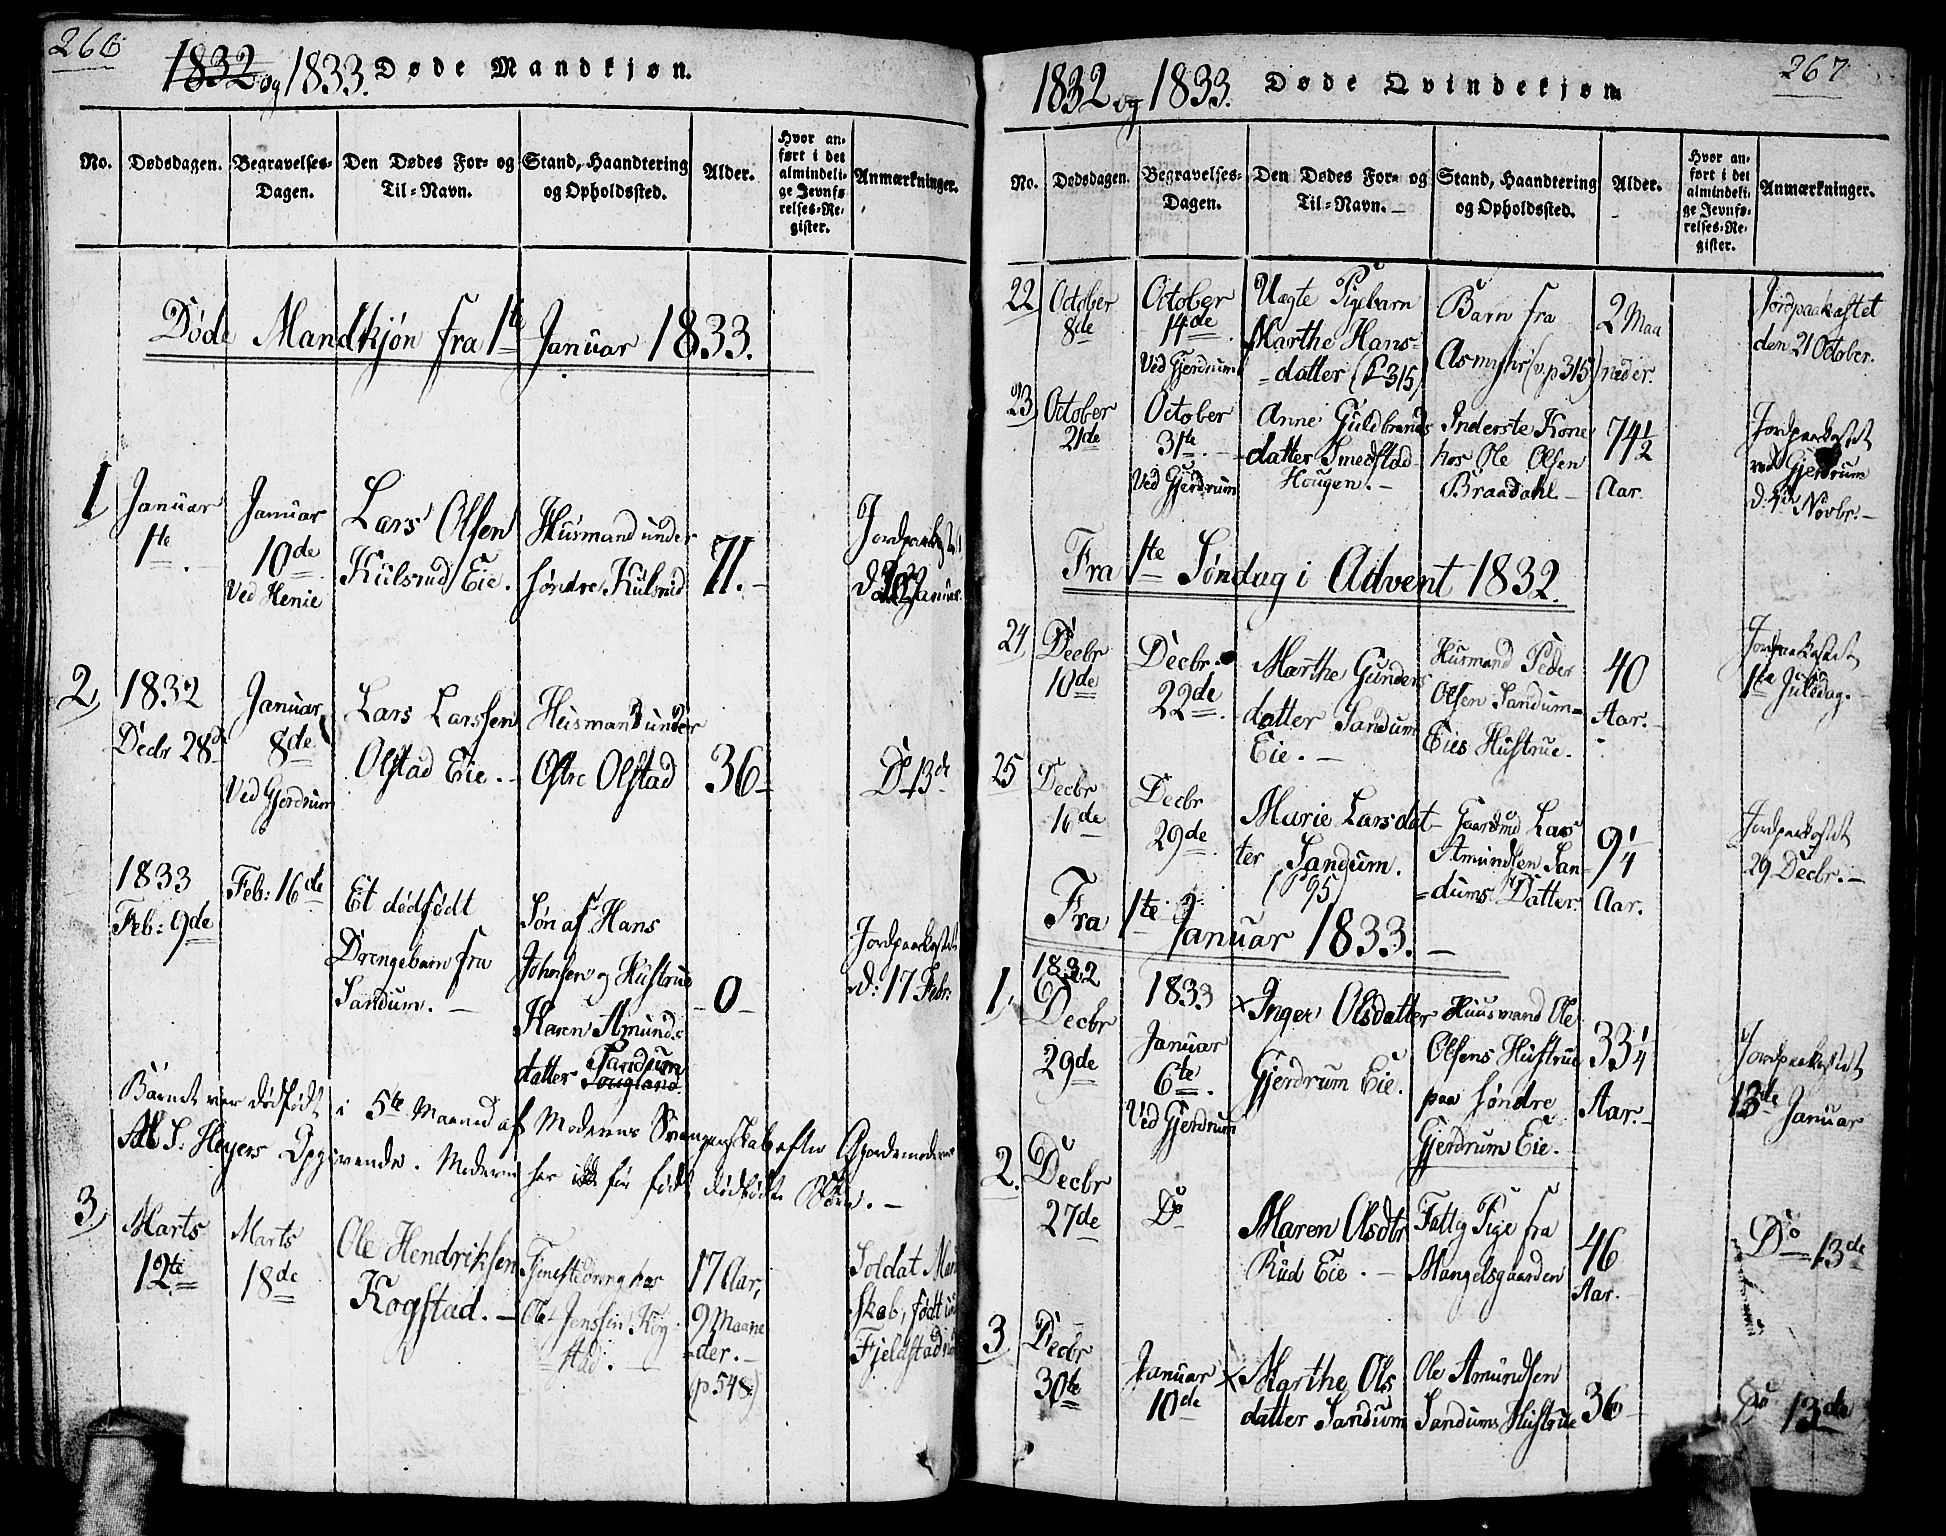 266
1832 og 1833. Døde Mandkjøn.
No.
Dødsdagen.
Begravelses-
Dagen.
Den Dødes For- og
Til-Navn.
Stand, Haandtering
og Opholdssted.
Alder.
Hvor an-
ført i det
almindeli-
ge Jevnfø-
relses-Re-
gister.
Anmærkninger.
Døde Mandkjøn fra 1te Januar 1833.
1
Januar
1te
Januar
10de
Ved Henie
Lars Olsen
Kulsrud Eie.
Husmand under
søndre Kulsrud
71.
Jordpaakastet
Januar.
2
1832
Decbr 28de
Januar
8de
Ved Gjerdrum
Lars Larssen
Olstad Eie.
Husmand under
Østre Olstad
36
Do 13de
1833
Feb: 9de
Feb: 16de
Et dødfødt
Drengebarn fra
Sandum.
Søn af Hans
Johnsen og Hustrue
Karen Amunds
datter Sandum
0
Jordpaakastet
d: 17 Febr:
Barnet var dødfødt i 5te Maaned af Moderens Svangerskab efter Gjordemoderen
S. Heyers Opgivende. Moderen har før født dødfødte Børn.
3
Marts
12te
Marts
18de
Ole Hendriksen
Kogstad.
Tjenestedreng hos
Ole Jenssen Kog-
stad.
17 Aar,
9 Maane-
der.
(p 548)
Soldat Mand
skab, født
Fjeldstad
267
1832 og 1833. Døde Qvindekjøn
No.
Dødsdagen.
Begravelses-
Dagen.
Den Dødes For- og
Til-Navn.
Stand, Haandtering
og Opholdssted.
Alder.
Hvor an-
ført i det
almindeli-
ge Jevnfø-
relses-Re-
gister.
Anmærkninger.
22
October
8de
October
14de
Ved Gjerdrum
Uægte Pigebarn
Marthe Hans-
datter (P 315)
Barn fra
Asmyhr (v.p 315)
2 Maa
neder.
Jordpaakastet
den 21 October.
23
October
21de
October
31te
Ved Gjerdrum
Anne Guldbrands
datter Smedstad
Hougen.
Inderste Kone
hos Ole Olsen
Braadahl
74½
Aar.
Jordpaakastet
ved Gjerdrum
d. 4de Novbr.
Fra 1te Søndag i Advent 1832.
24
Decbr
10de
Decbr.
22de
Marthe Gunders
datter Sandum
Eie.
Husmand Peder
Olsen Sandum-
Eies Hustrue.
40
Aar.
Jordpaakastet
1te Juledag.
25
Decbr
16de
Decbr
29de
Marie Larsdat-
ter Sandum.
(P 95)
Gaardmd Lars
Amundsen San-
dums Datter.
9¼
Aar.
Jordpaakastet
29 Decbr.
Fra 1te Januar 1833.
1.
1832
Decbr
29de
1833
Januar
6te
Ved Gjerdrum
x Inger Olsdatter
Gjerdrum Eie.
Huusmand Ole
Olsens Hustrue
paa søndre
Gjerdrum Eie.
33¼
Aar.
Jordpaakastet
13de Januar
2.
Decbr
27de
Do
Maren Olsdtr
Rud Eie.
Fattig Pige fra
Mangelsgaarden
46
Aar.
Do 13de
3.
Decbr
30te
Januar
10de
x Marthe Ols
datter Sandum
Ole Amundsen
Sandums Hustrue
36
Do 13de